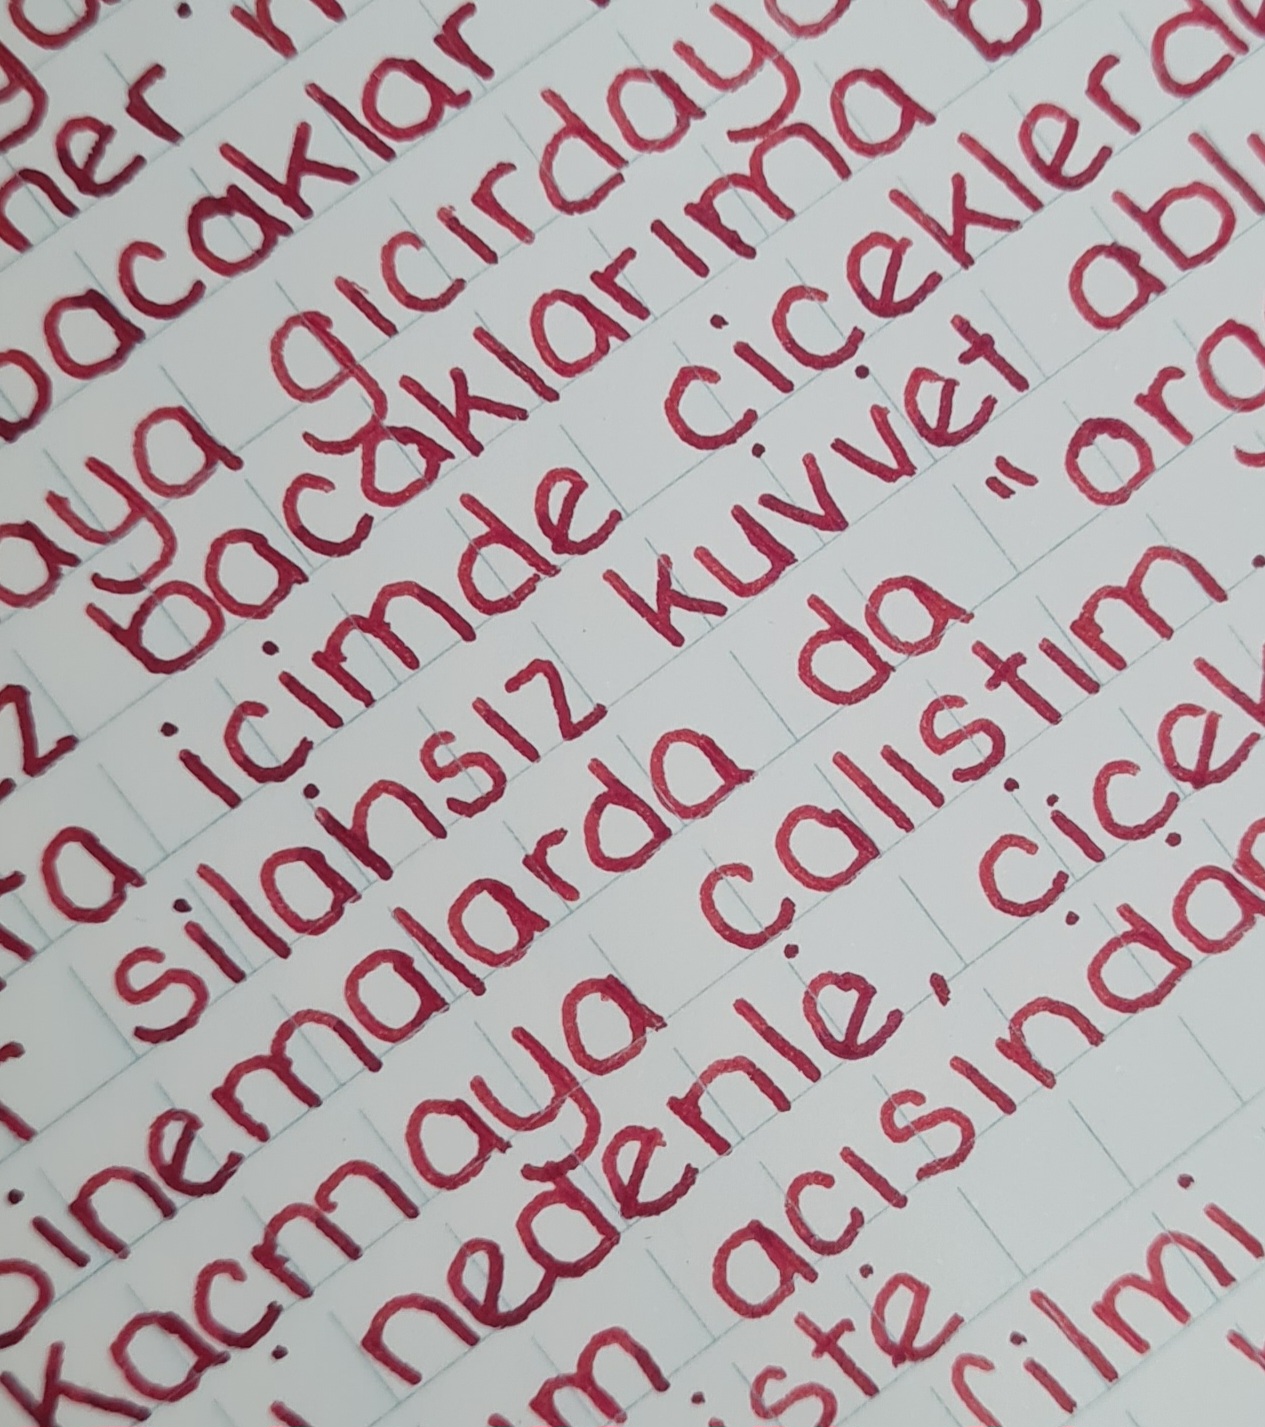 bacaklar
gıcırdaya
bacaklarıma
içimde çiçeklerde
silahsız kuvvet
sinemalarda da "
kaçmaya çalıştım .
nedenle, çiçek
açısından
işte
filmi